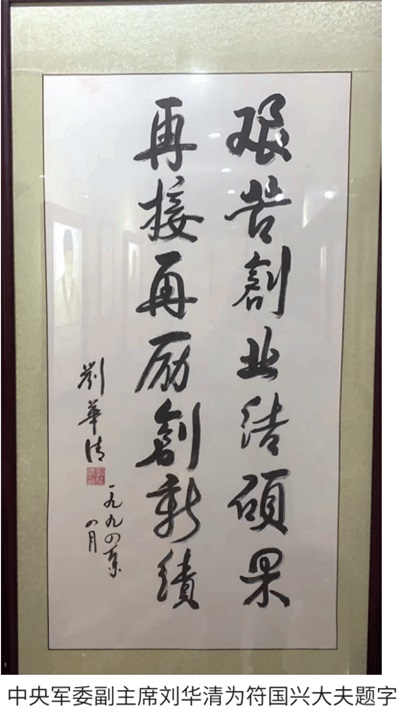 艰苦創业结碩果
再接再励創新績
劉華清
一九九四年
四月
中央军委副主席刘华清为符国兴大夫题字